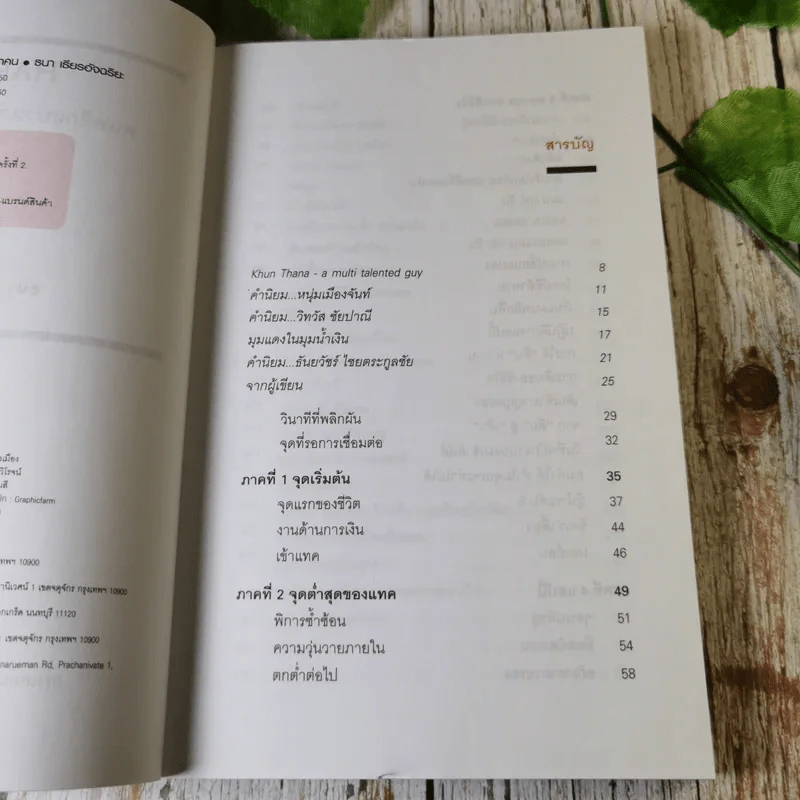 ธนา เธียรอัจฉริยะ
ครั้งที่ 2
แบรนด์สินค้า
: Graphicfarm
10900
านิเวศน์ 1 เขตจตุจักร กรุงเทพฯ 10900
กเกร็ด นนทบุรี 11120
เขตจตุจักร กรุงเทพฯ 10900
narueman Rd, Prachanivate 1,
สารบัญ
Khun Thana - a multi talented guy 8
คำนิยม...หนุ่มเมืองจันท์ 11
คำนิยม...วิทวัส ชัยปาณี 15
มุมแดงในมุมน้ำเงิน 17
คำนิยม...ธันยวัชร์ ไชยตระกูลชัย 21
จากผู้เขียน 25
วินาทีที่พลิกผัน 29
จุดที่รอการเชื่อมต่อ 32
ภาคที่ 1 จุดเริ่มต้น 35
จุดแรกของชีวิต 37
งานด้านการเงิน 44
เข้าแทค 46
ภาคที่ 2 จุดต่ำสุดของแทค 49
พิการซ้ำซ้อน 51
ความวุ่นวายภายใน 54
ตกต่ำต่อไป 58